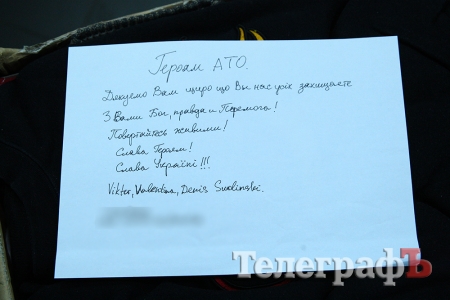 Героям АТО.
Дякуємо Вам щиро що Вы нас усіх захищаєте
З Вами Бог, правда и Перемога!
Повертайтесь живими!
Слава Героям!
Слава Україні!!!
Viktor, Valentina, Denis Smolinski.
ТелеграфЪ